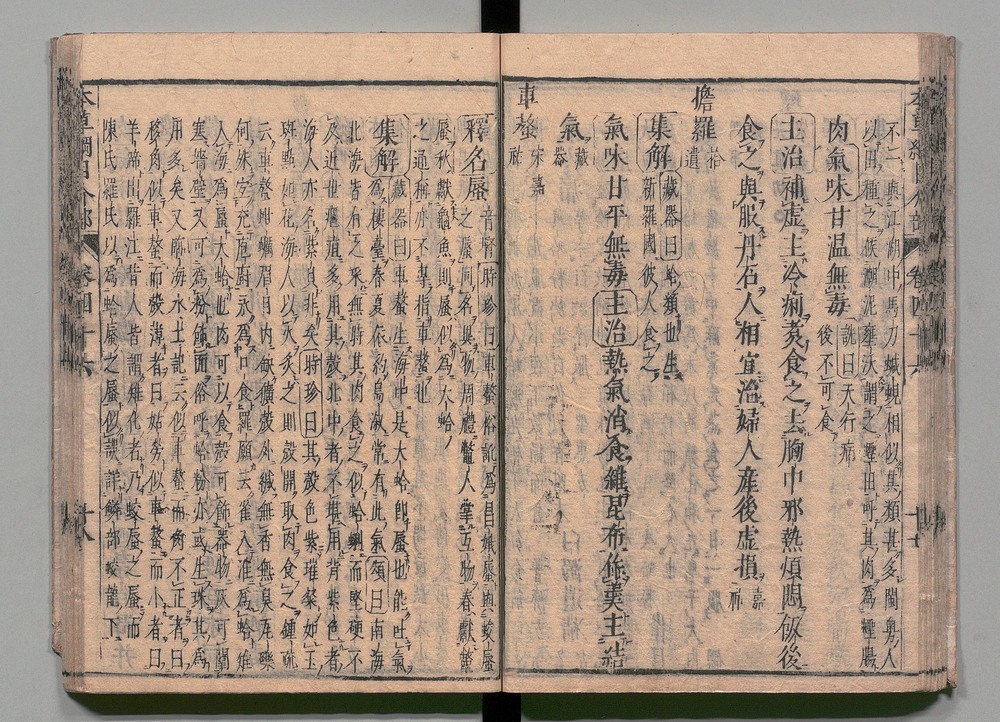 本草綱目介部 卷四十六 十七
不二與江湖中馬刀蝛蜆相似其類甚多閩粤人
以田種之候潮泥壅沃謂之蟶田呼其肉爲蟶腸
肉氣味甘温無毒詵曰天行病
後不可食
主治補虛主冷痢煮食之去胸中邪熱煩悶飯後
食之與服丹石人相宜治婦人産後虛損嘉祐
擔羅拾遺
集解藏器曰蛤類也生
新羅國彼人食之
氣味甘平無毒主治熱氣消食雜昆布作羮主結
氣藏器
車螯宋嘉祐
釋名蜃音腎時珍曰車螯俗訛爲昌娥蜃與蛟蜃
之蜃同名異物周禮鼈人掌互物春獻鼈
蜃秋獻龜魚則蜃似爲大蛤
之通稱亦不專指車螯也
集解藏器曰車螯生海中是大蛤即蜃也能吐氣
爲樓臺春夏依約島溆常有此氣頌曰南海
北海皆有之采無時其肉食之似蛤蜊而堅硬不
及近世癰疽多用其殼北中者不堪用背紫色者
海人亦名紫貝非矣時珍曰其殼色紫璀粲如玉
斑點如花海人以火炙之則殼開取肉食之鍾岏
云車螯蚶蠣眉目内缺獷殼外緘無香無臭瓦礫
何殊宜充庖厨永爲口食羅願云雀入淮爲蛤雉
入海爲蜃大蛤也肉可以食殼可飾器物灰可闉
塞墻壁又可爲粉飾面俗呼蛤粉亦或生珠其爲
用多矣又臨海水土記云似車螯而角不正者曰
移角似車螯而殼薄者曰姑勞似車螯而小者曰
羊蹄出羅江昔人皆謂雉化者乃蛟蜃之蜃而
陳氏羅氏以爲蛤蜃之蜃似誤詳鱗部蛟龍下
本草綱目介部 卷四十六 十八